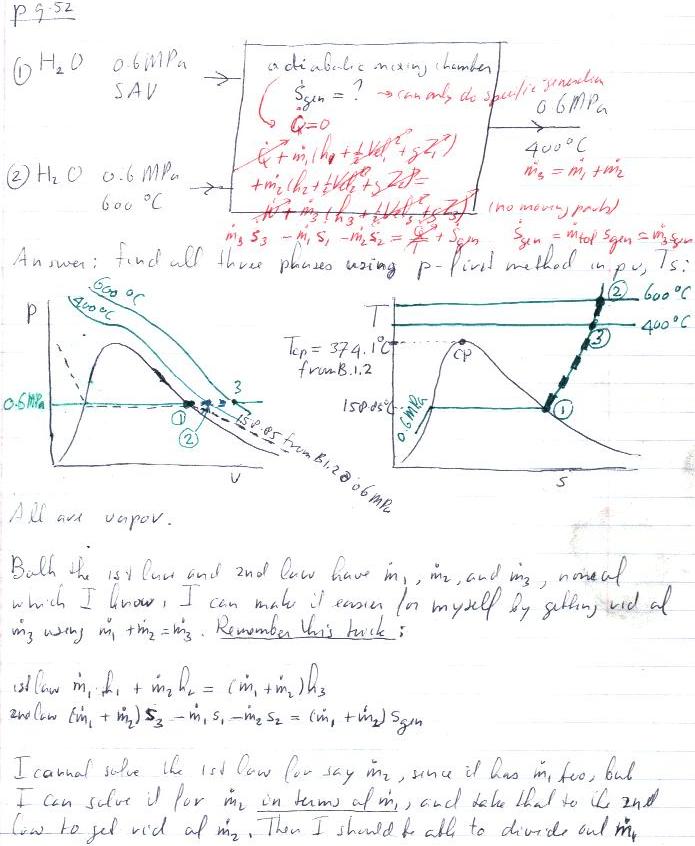 p 9.52
① H₂O 0.6 MPa
SAV
② H₂O 0.6 MPa
600 °C
adiabatic mixing chamber
Ṡgen = ? → can only do specific generation
Q̇=0
Q̇ + ṁ₁(h₁ + ½Vel₁² + gZ₁)
+ṁ₂(h₂+½Vel₂²+gZ₂)=
Ẇ + ṁ₃(h₃+½Vel₃²+gZ₃) (no moving parts)
0.6MPa
400°C
ṁ₃ = ṁ₁+ṁ₂
ṁ₃s₃ - ṁ₁s₁ - ṁ₂s₂ = Q̇/T + Ṡgen Ṡgen = ṁtot sgen = ṁ₃sgen
Answer: find all three phases using p-first method in pv, Ts:
P
600 °C
400°C
0.6MPa
①
②
3
158.85 from B.1.2 @ 0.6 MPa
v
T
Tcp = 374.1°C
from B.1.2
CP
158.85°C
0.6MPa
② 600°C
400°C
③
①
s
All are vapor.
Both the 1st law and 2nd law have ṁ₁, ṁ₂, and ṁ₃, none of
which I know. I can make it easier for myself by getting rid of
ṁ₃ using ṁ₁ + ṁ₂ = ṁ₃. Remember this trick:
1st law ṁ₁h₁ + ṁ₂h₂ = (ṁ₁+ṁ₂)h₃
2nd law (ṁ₁ + ṁ₂)s₃ - ṁ₁s₁ - ṁ₂s₂ = (ṁ₁ + ṁ₂)sgen
I cannot solve the 1st law for say ṁ₂, since it has ṁ₁ too, but
I can solve it for ṁ₂ in terms of ṁ₁, and take that to the 2nd
law to get rid of ṁ₂. Then I should be able to divide out ṁ₁